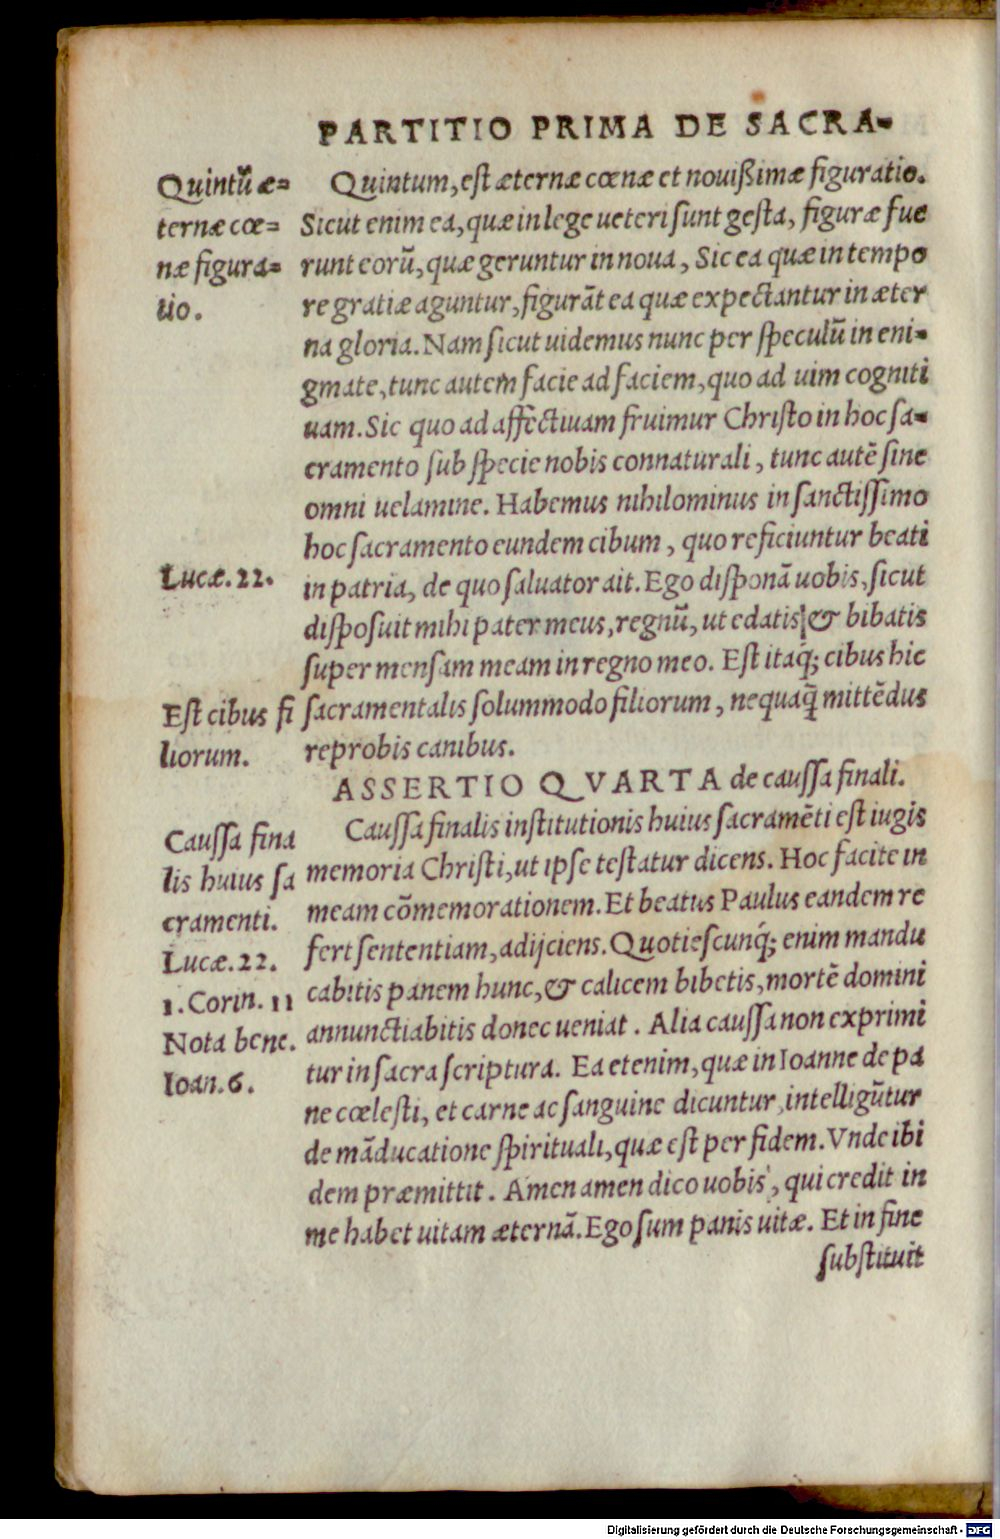 PARTITIO PRIMA DE SACRA-
Quintū æ=
ternæ cœ=
næ figura=
tio.
Quintum, est æternæ cœnæ et nouißimæ figuratio.
Sicut enim ea, quæ in lege ueteri sunt gesta, figuræ fue
runt eorū, quæ geruntur in noua, Sic ea quæ in tempo
re gratiæ aguntur, figurāt ea quæ expectantur in æter
na gloria. Nam sicut uidemus nunc per speculū in eni-
gmate, tunc autem facie ad faciem, quo ad uim cogniti
uam. Sic quo ad affectiuam fruimur Christo in hoc sa-
cramento sub specie nobis connaturali, tunc autē sine
omni uelamine. Habemus nihilominus in sanctissimo
hoc sacramento eundem cibum, quo reficiuntur beati
Lucæ. 22.
in patria, de quo saluator ait. Ego disponā uobis, sicut
disposuit mihi pater meus, regnū, ut edatis & bibatis
super mensam meam in regno meo. Est itaq́; cibus hic
Est cibus fi
liorum.
sacramentalis solummodo filiorum, nequaq̄ mittēdus
reprobis canibus.
ASSERTIO QVARTA de caussa finali.
Caussa fina
lis huius sa
cramenti.
Lucæ. 22.
1. Corin. 11
Nota bene.
Ioan. 6.
Caussa finalis institutionis huius sacramēti est iugis
memoria Christi, ut ipse testatur dicens. Hoc facite in
meam cōmemorationem. Et beatus Paulus eandem re
fert sententiam, adijciens. Quotiescunq́; enim mandu
cabitis panem hunc, & calicem bibetis, mortē domini
annunctiabitis donec ueniat. Alia caussa non exprimi
tur in sacra scriptura. Ea etenim, quæ in Ioanne de pa
ne cœlesti, et carne ac sanguine dicuntur, intelligūtur
de māducatione spirituali, quæ est per fidem. Vnde ibi
dem præmittit. Amen amen dico uobis, qui credit in
me habet uitam æternā. Ego sum panis uitæ. Et in fine
substituit
Digitalisierung gefördert durch die Deutsche Forschungsgemeinschaft - DFG